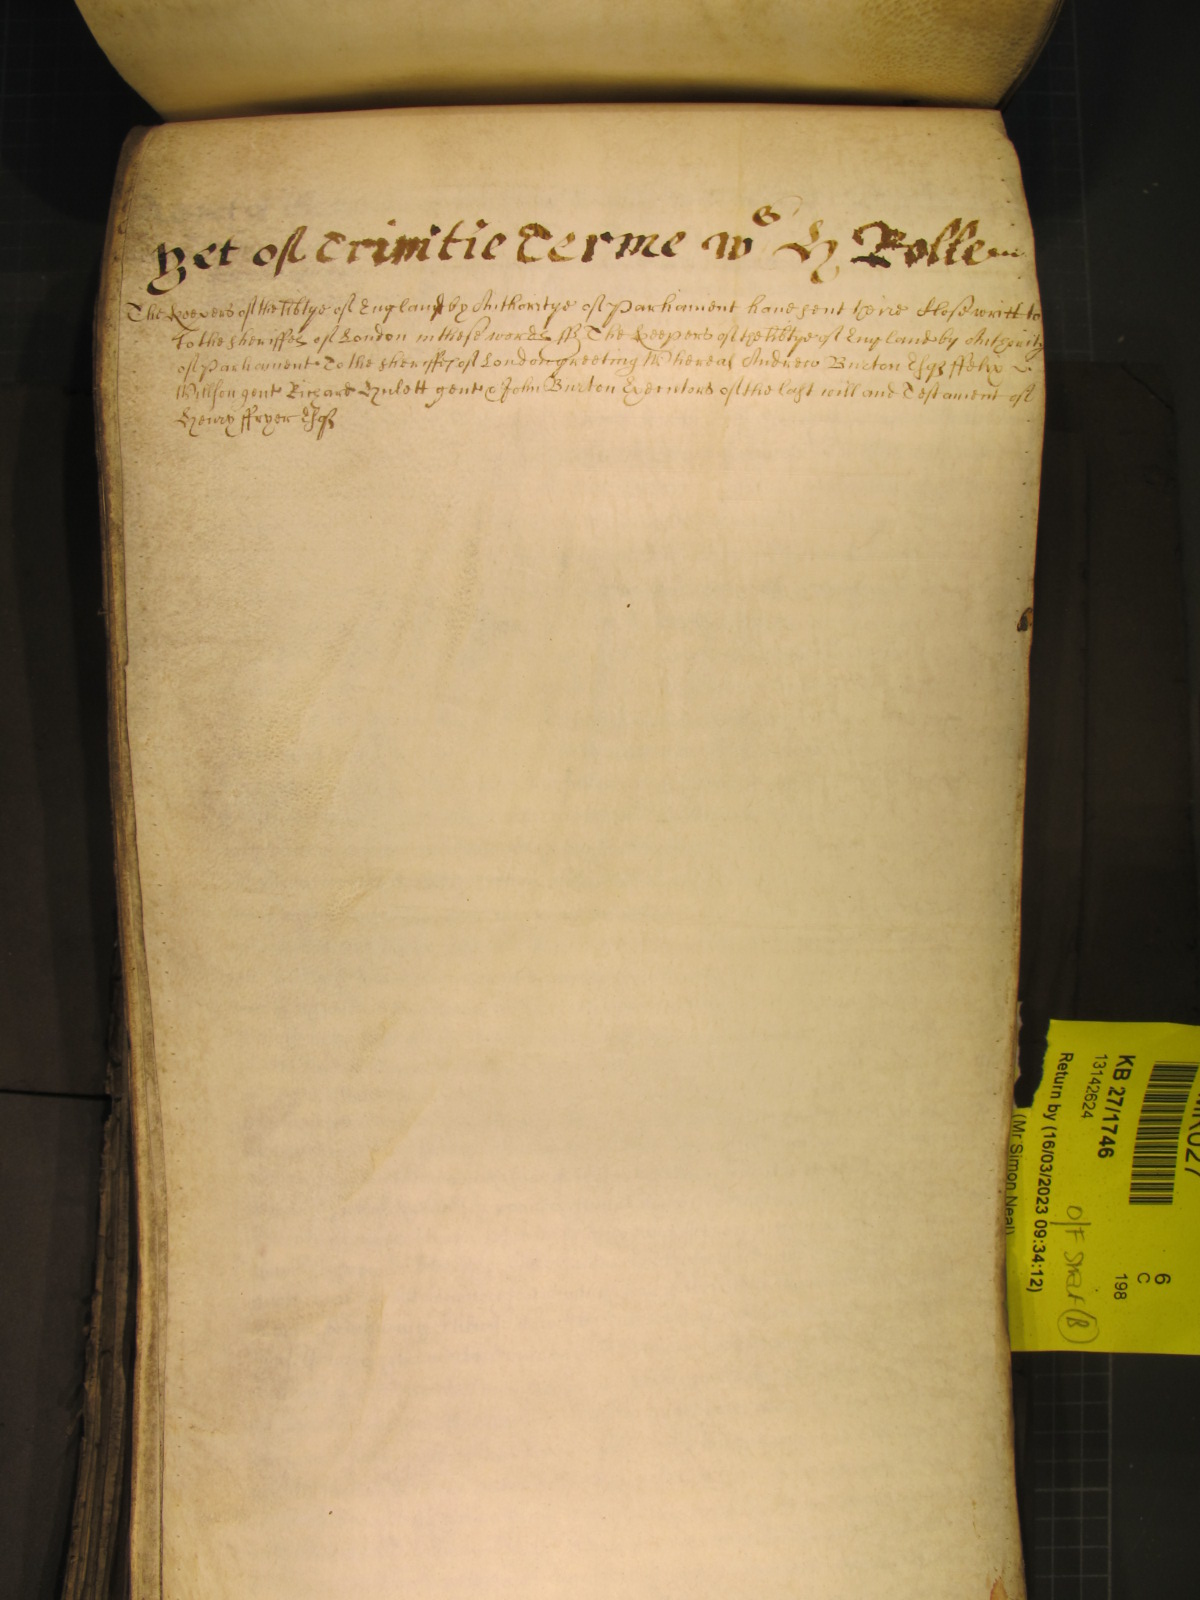 Yet of Trinitie Terme wth H Rolle
The keepers of the libtye of England by Authoritye of Parliament have sent theire close writt to
to the sheriffes of London in these words ss The keepers of the libtye of England by Authority
of Parliament To the sheriffes of London greeting Whereas Andrew Burton Esqr ffelix
Willson gent Richard Hulett gent & John Burton Executors of the last will and Testament of
Henry ffryer Esqr
KB 27/1746
13142624
Return by (16/03/2023 09:34:12)
(Mr Simon Neal)
6
C
198